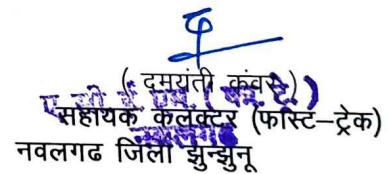 ( दमयंती कंवर )
सहायक कलेक्टर (फास्ट–ट्रेक)
नवलगढ जिला झुन्झुनू